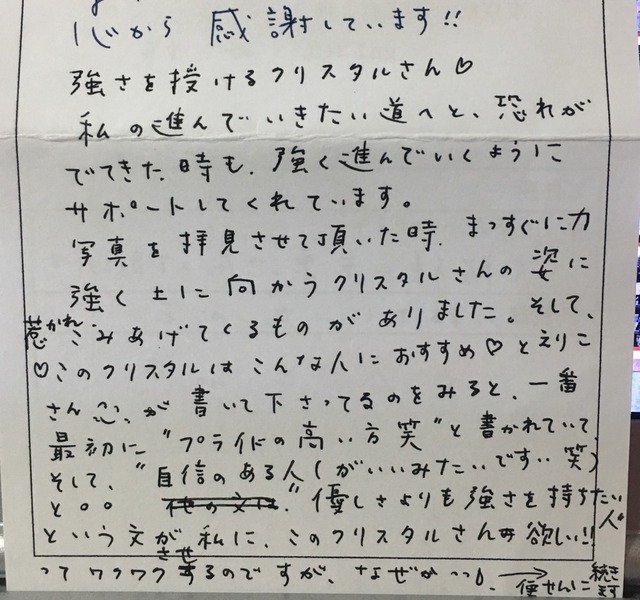 心から 感謝しています!!
強さを授けるクリスタルさん♡
私の進んでいきたい道へと、恐れが
でてきた時も、強く進んでいくように
サポートしてくれています。
写真を拝見させて頂いた時、まっすぐに力
強く上に向かうクリスタルさんの姿に
惹かれ、こみあげてくるものがありました。そして、
♡このクリスタルはこんな人におすすめ♡とえりこ
さんが書いて下さってるのをみると、一番
最初に“プライドの高い方 笑”と書かれていて、
そして、“自信のある人(がいいみたいです‥笑)
と○○ “優しさよりも強さを持ちたい人”
という文が私に、このクリスタルさんが欲しい!!
ってワクワクさせるのですが、なぜかっ → 便せんに続きます